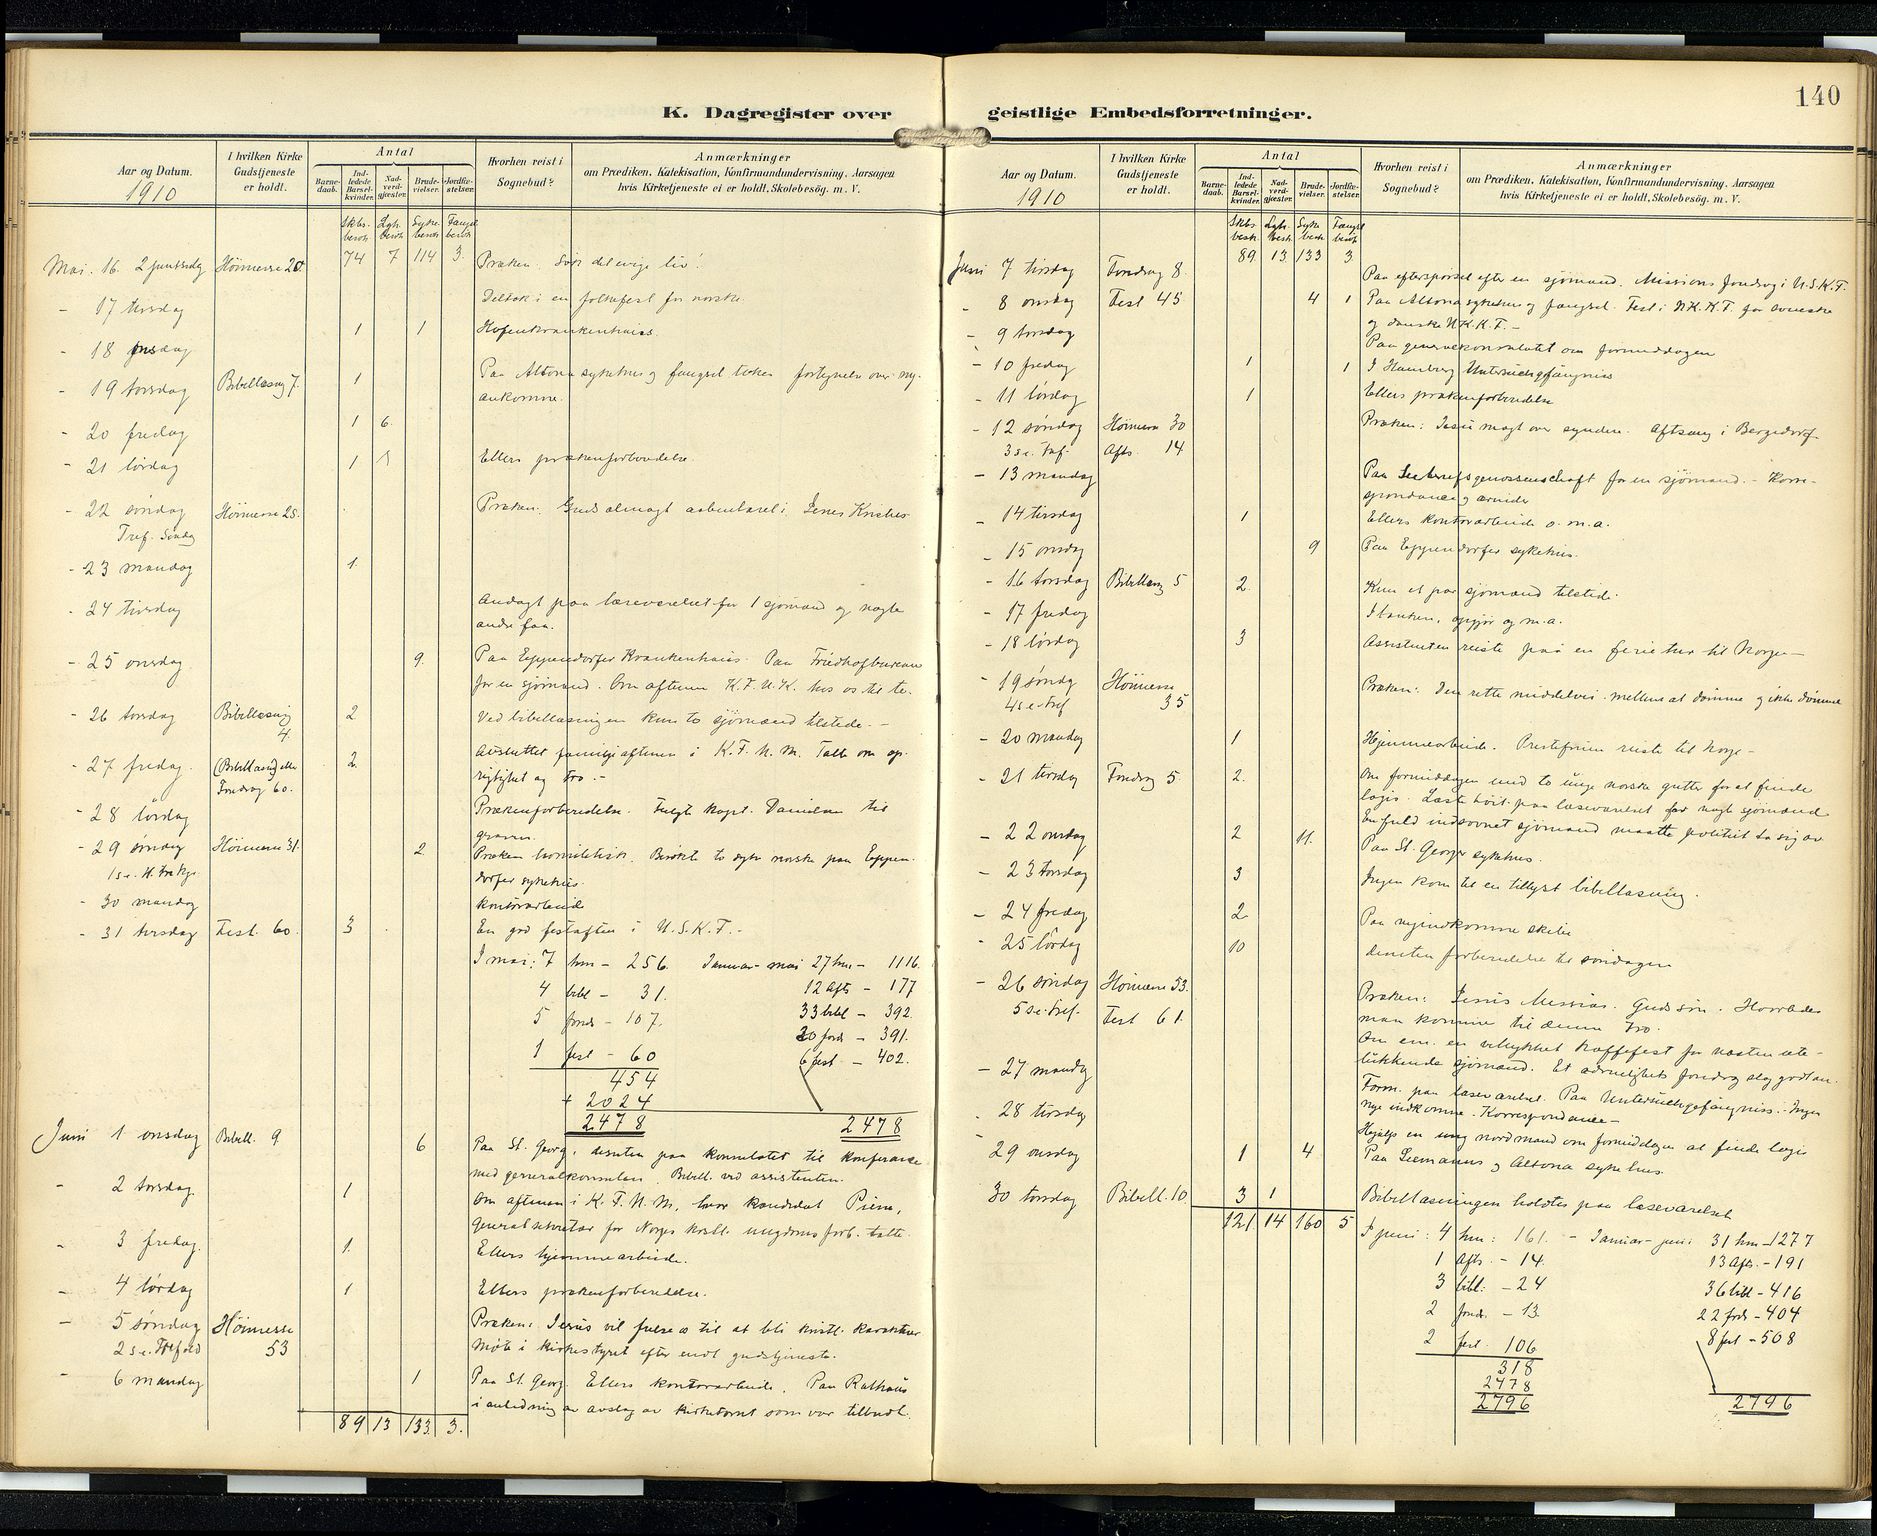 140
K. Dagregister over geistlige Embedsforretninger.
Aar og Datum.
1910
I hvilken Kirke Gudstjeneste er holdt.
Antal
Barnedaab.
Indledede Barselkvinder.
Nadverdgjæster.
Brudevielser.
Jordfæstelser.
Hvorhen reist i Sognebud?
Anmærkninger
om Prædiken, Katekisation, Konfirmandundervisning, Aarsagen
hvis Kirketjeneste ei er holdt, Skolebesög. m. V.
Skbs. besök Lgh. besök Syke besök Fængsl besök
74 7 114 3
Mai. 16. 2 pintsedag Höimesse 20. Præken.
- 17 tirsdag Deltok i en folkefest for norske.
- 18 onsdag 1 1 Hafenkrankenhaus.
- 19 torsdag Bibellæsng 7. 1 Paa Altona sykehus og fængsel fortegnelse over ny-
ankomne.
- 20 fredag 1 6.
- 21 lördag 1 Ellers prækenforberedelse.
- 22 söndag Höimesse 25. Præken. Guds almagt aabenbaret i Jesus Kristus
Tref. Söndag
- 23 mandag 1.
- 24 tirsdag Andagt paa læseværelset for 1 sjömand og nogle
andre faa.
- 25 onsdag 9. Paa Eppendorfer Krankenhaus. Paa Friedhofbureau
for en sjömand. Om aftenen K.F.U.K. hos os til te.
- 26 torsdag Bibellæsng 4. 2 Ved bibellæsningen kun to sjömænd tilstede. -
- 27 fredag. (Bibellæsng) eller 2. Avsluttet familjeaftenen i K.F.U.M. Talte om op-
Foredrag 60. rigtighet og tro. -
- 28 lördag Prækenforberedelse. Fulgte kapt. Danielsen til
graven.
- 29 söndag Höimesse 31. 2. Præken homiletisk. Besökte to syke norske paa Eppen-
1 s.e. H. trekg. dorfer sykehus.
- 30 mandag kontorarbeide
- 31 tirsdag Fest. 60. 3 En god festaften i U.S.K.F. -
I mai: 7 hm - 256. Januar - mai 27 hm - 1116.
4 bibl - 31. 12 Afts - 177
5 foredr - 107. 33 bibel - 392.
1 fest - 60 20 fordr - 391.
454 6 fest. - 402.
+ 2024
2478 2478
Juni 1 onsdag Bibell. 9 6 Paa St. Georg, desuten paa konsulatet til konferanse
med generalkonsulen. Bibell. ved assistenten.
- 2 torsdag. 1 Om aftenen i K.F.U.M., hvor kandidat
Generalsekretær for Norges kristl. ungdomsforb. talte.
- 3 fredag. 1. Ellers hjemmearbeide.
- 4 lördag 1 Ellers prækenforberedelse.
- 5 söndag Höimesse Præken: Jesus vil frelse os til at bli kristl. karakterer
2 s.e. Trefold 53 Möte i kirkestyret efter endt gudstjeneste.
- 6 mandag 1 Paa St. Georg. Ellers kontorarbeide. Paa Rathaus
i anledning av avslag av kirketomt som var tilbudt.
89 13 133. 3.
Aar og Datum.
1910
I hvilken Kirke Gudstjeneste er holdt.
Antal
Barnedaab.
Indledede Barselkvinder.
Nadverdgjæster.
Brudevielser.
Jordfæstelser.
Hvorhen reist i Sognebud?
Anmærkninger
om Prædiken, Katekisation, Konfirmandundervisning, Aarsagen
hvis Kirketjeneste ei er holdt, Skolebesög. m. V.
Skbs. besk Lgh. besk Syke besk Fængsl besök
89. 13. 133 3
Juni 7 tirsdag Foredrag 8. Paa efterspörsel efter en sjömand. Missions foredrag i U.S.K.F.
- 8 onsdag Fest 45 4 1 Paa Altona sykehus og fængsel. Fest i U.K.K.F. for svenske
og danske U.K.K.F. -
- 9 torsdag Paa generalkonsulatet om formiddagen
- 10 fredag 1 1 I Hamburg Untersuchgefängniss
- 11 lördag 1 Ellers prækenforberedelse
- 12 söndag Höimesse 30 Præken: Jesu magt over synden. Aftsang i Bergedorf
3 s.e. Tref. Afts. 14
- 13 mandag Paa Seeberufsgenossenschaft for en sjömand. - Korre-
spondance og ærinder
- 14 tirsdag 1 Ellers kontorarbeide o.m.a.
- 15 onsdag 9 Paa Eppendorfer sykehus.
- 16 torsdag Bibellæsng 5 2. Kun et par sjömænd tilstede.
- 17 fredag I banken, opgjör og m.a.
- 18 lördag 3 Assistenten reiste paa en ferietur til Norge -
- 19 söndag Höimesse Præken: Den rette middelvei mellem at dömme og ikke dömme
4 s.e. tref 35
- 20 mandag 1 Hjemmearbeide. Prestefruen reiste til Norge -
- 21 tirsdag Foredrag 5. 2. Om formiddagen med to unge norske gutter for at finde
logis. Læste höit paa læseværelset for nogle sjömænd
En fuld indsovnet sjömand maatte politiet ta sig av
- 22 onsdag 2 11. Paa St. Georgs sykehus.
- 23 torsdag 3 Ingen kom til en tillyst bibellæsning.
- 24 fredag 2 Paa nyindkomne skibe
- 25 lördag 10 desuten forberedelse til söndagen
- 26 söndag Höimesse 53. Præken: Jesus Messias. Guds sön. Hvorledes
5 s.e. tref. Fest 61. man kommer til denne tro.
Om em. en vellykket kaffefest for næsten ute-
lukkende sjömænd. Et ædruelighets foredrag slog godt an.
- 27 mandag Form. paa læseværelset. Paa Untersuchgefängniss. - Ingen
nye indkomne. Korrespondance -
- 28 tirsdag Hjalp en ung nordmand om formiddagen at finde logis
- 29 onsdag 1 4 Paa Seemanns og Altona sykehus.
30 torsdag Bibell. 10. 3 1 Bibellæsningen holdtes paa læseværelset
121 14 160 5
I juni: 4 hm: 161. - Januar - juni: 31 hm - 1277
1 Afts. - 14. 13 Afts. - 191
3 bibl: - 24 36 bibl - 416
2 foredr. - 13. 22 fordr - 404
2 fest. 106 8 fest - 508
318
2478
2796 2796